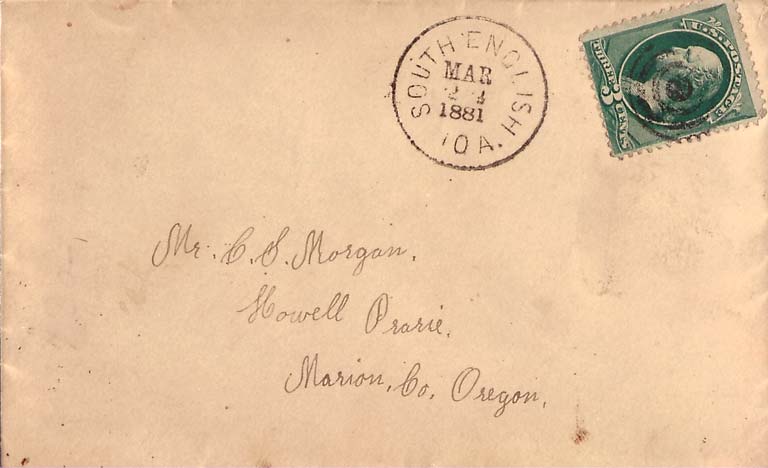 SOUTH ENGLISH
MAR
24
1881
IOA.
U.S. POSTAGE
THREE 3 CENTS
Mr. C. S. Morgan.
Howell Prarie.
Marion, Co, Oregon,